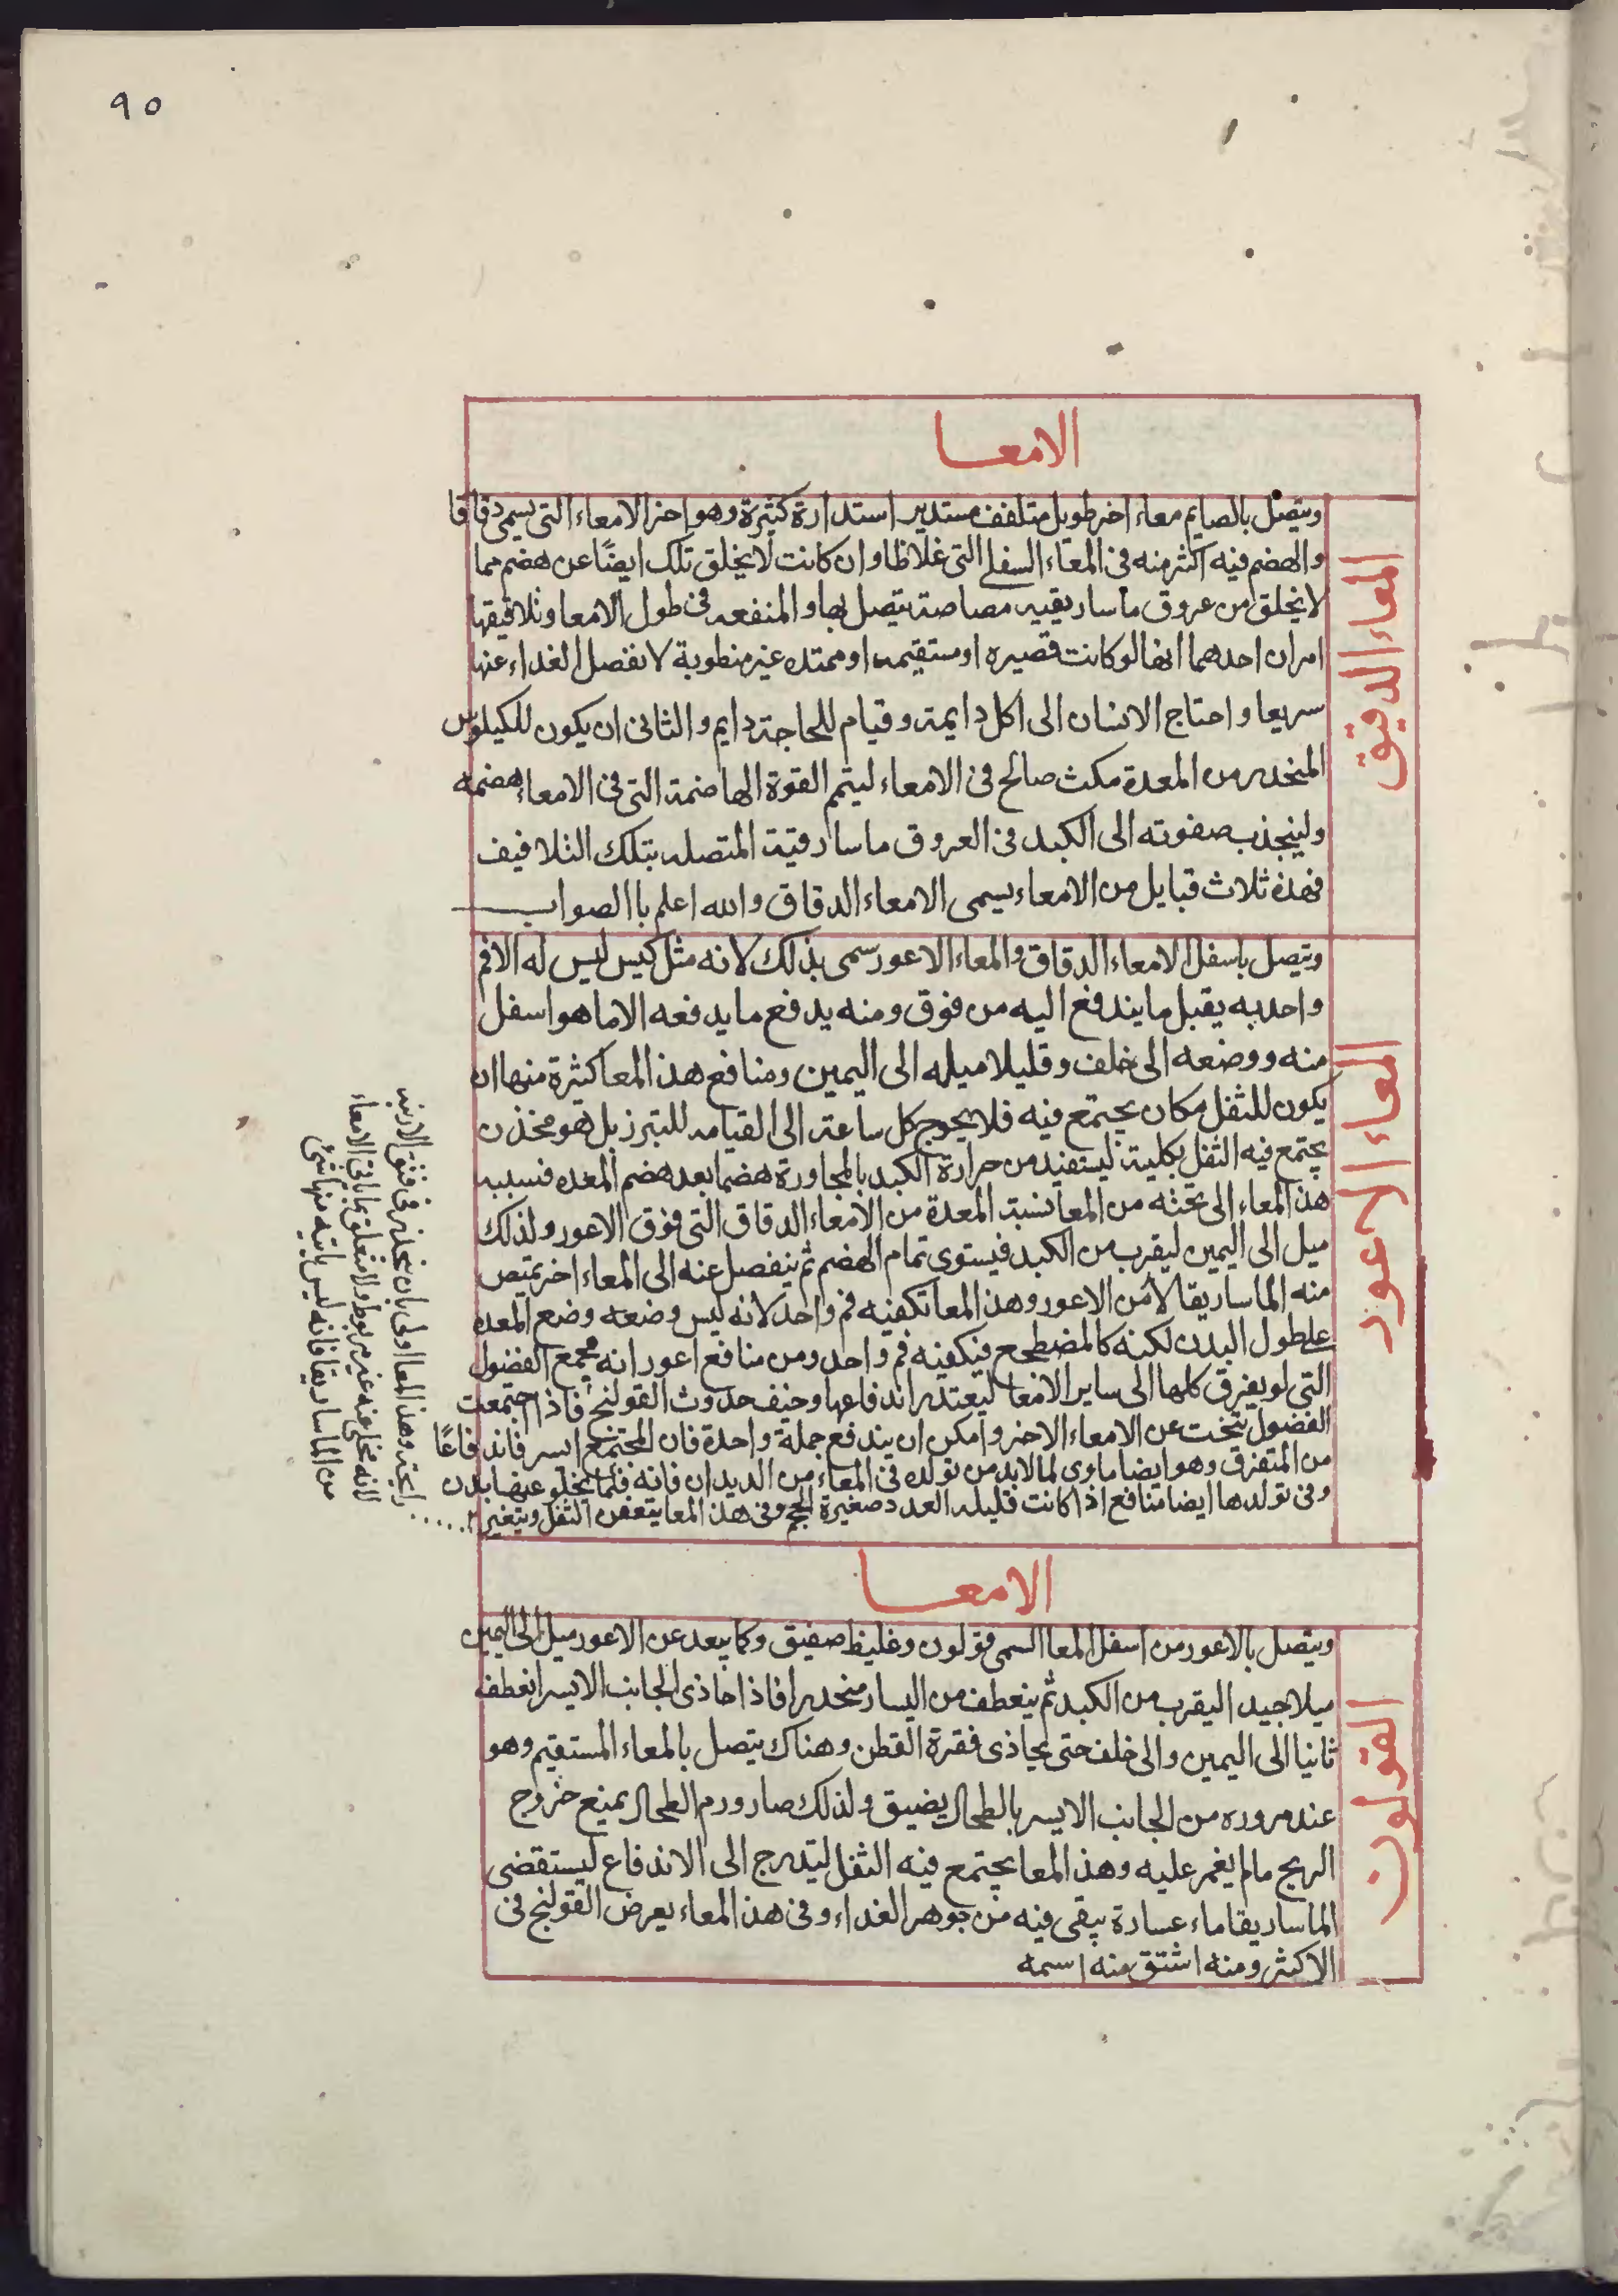 ٩٥
الامعا
المعاء الدقيق
ويتصل بالصايم معاء اخر طويل متلفف مستدير استدارة كثيرة وهو اخر الامعاء التى يسمى دقاقا
والهضم فيه اكثر منه فى المعاء السفلى التى غلاظا وان كانت لا يخلق تلك ايضًا عن هضم مما
لا يخلق من عروق ماساريقيه مصاصة يتصل بها والمنفعه فى طول الامعا وتلافيفها
امران احدهما انها لو كانت قصيره او مستقيمه او ممتده غير منطوية لانفصل الغداء عنها
سريعا واحتاج الانسان الى اكل دايمة وقيام للحاجة دايم والثانى ان يكون للكيلوس
المنحدر من المعدة مكث صالح فى الامعاء ليتم القوة الهاضمة التى فى الامعاء هضمه
ولينجذب صفوته الى الكبد فى العروق ماسارقية المتصله بتلك التلافيف
فهذه ثلاث قبايل من الامعاء يسمى الامعاء الدقاق والله اعلم باالصواب
المعاء الاعور
ويتصل باسفل الامعاء الدقاق والمعاء الاعور سمى بذلك لانه مثل كيس ليس له الا فم
واحد به يقبل ما يندفع اليه من فوق ومنه يدفع ما يدفعه الا ما هو اسفل
منه ووضعه الى خلف وقليلا ميله الى اليمين ومنافع هذا المعا كثرة منها ان
يكون للثفل مكان يجتمع فيه فلا يحوج كل ساعة الى القيامه للتبرز بل هو مخذن
يجتمع فيه الثفل بكلية ليستفيد من حرارة الكبد بالمجاورة هضما بعد هضم المعده فنسبه
هذا المعاء الى تحته من المعا نسبة المعدة من الامعاء الدقاق التى فوق الاعور ولذلك
ميل الى اليمين ليقرب من الكبد فيستوى تمام الهضم ثم ينفصل عنه الى المعاء اخر يمتص
منه الماساريقا لامن الاعور وهذا المعا تكفيه فم واحد لانه ليس وضعه وضع المعده
على طول البدن لكنه كالمضطجع فيكفيه فم واحد ومن منافع اعور انه مجمع الفضول
التى لو يفرق كلها الى ساير الامعا ليعتذر اندفاعها وخيف حدوث القولنج فاذا اجتمعت
الفضول تنحت عن الامعاء الاخر وامكن ان يندفع جملة واحدة فان المجتمع ايسر فاندفاعًا
من المتفرق وهو ايضا ماوى لما لا بد من تولده فى المعاء من الديدان فانه قلما يخلو عنها بدن
وفى تولدها ايضا منافع اذا كانت قليله العدد صغيرة الحجم وفى هذا المعا يتعفن الثفل ويتغير
رايحته وهذا المعا اولى بان ينحدر فى فتق الاربيه
لانه مخلى عنه غير مربوط ولا متعلق بما ياتى الامعاء
من الماساريقا فانه ليس ياتيه منها شئ
الامعا
القولون
ويتصل بالاعور من اسفل المعا السمى قولون وغليظ صفيق وكما يبعد عن الاعور ميل الى اليمين
ميلا جيدا ليقرب من الكبد ثم ينعطف من اليسار منحدرا فاذا حاذى الجانب الايسر انعطفه
ثانيا الى اليمين والى خلف حتى يحاذى فقرة القطن وهناك يتصل بالمعاء المستقيم وهو
عند مروره من الجانب الايسر بالطحال يضيق ولذلك صار ورم الطحال يمنع خروج
الريح مالم يغمر عليه وهذا المعا يجتمع فيه الثفل ليتدرج الى الاندفاع ليستقضى
الماساريقا ماء عسارة يبقى فيه من جوهر الغداء وفى هذا المعاء يعرض القولنج فى
الاكثر ومنه اشتق منه اسمه